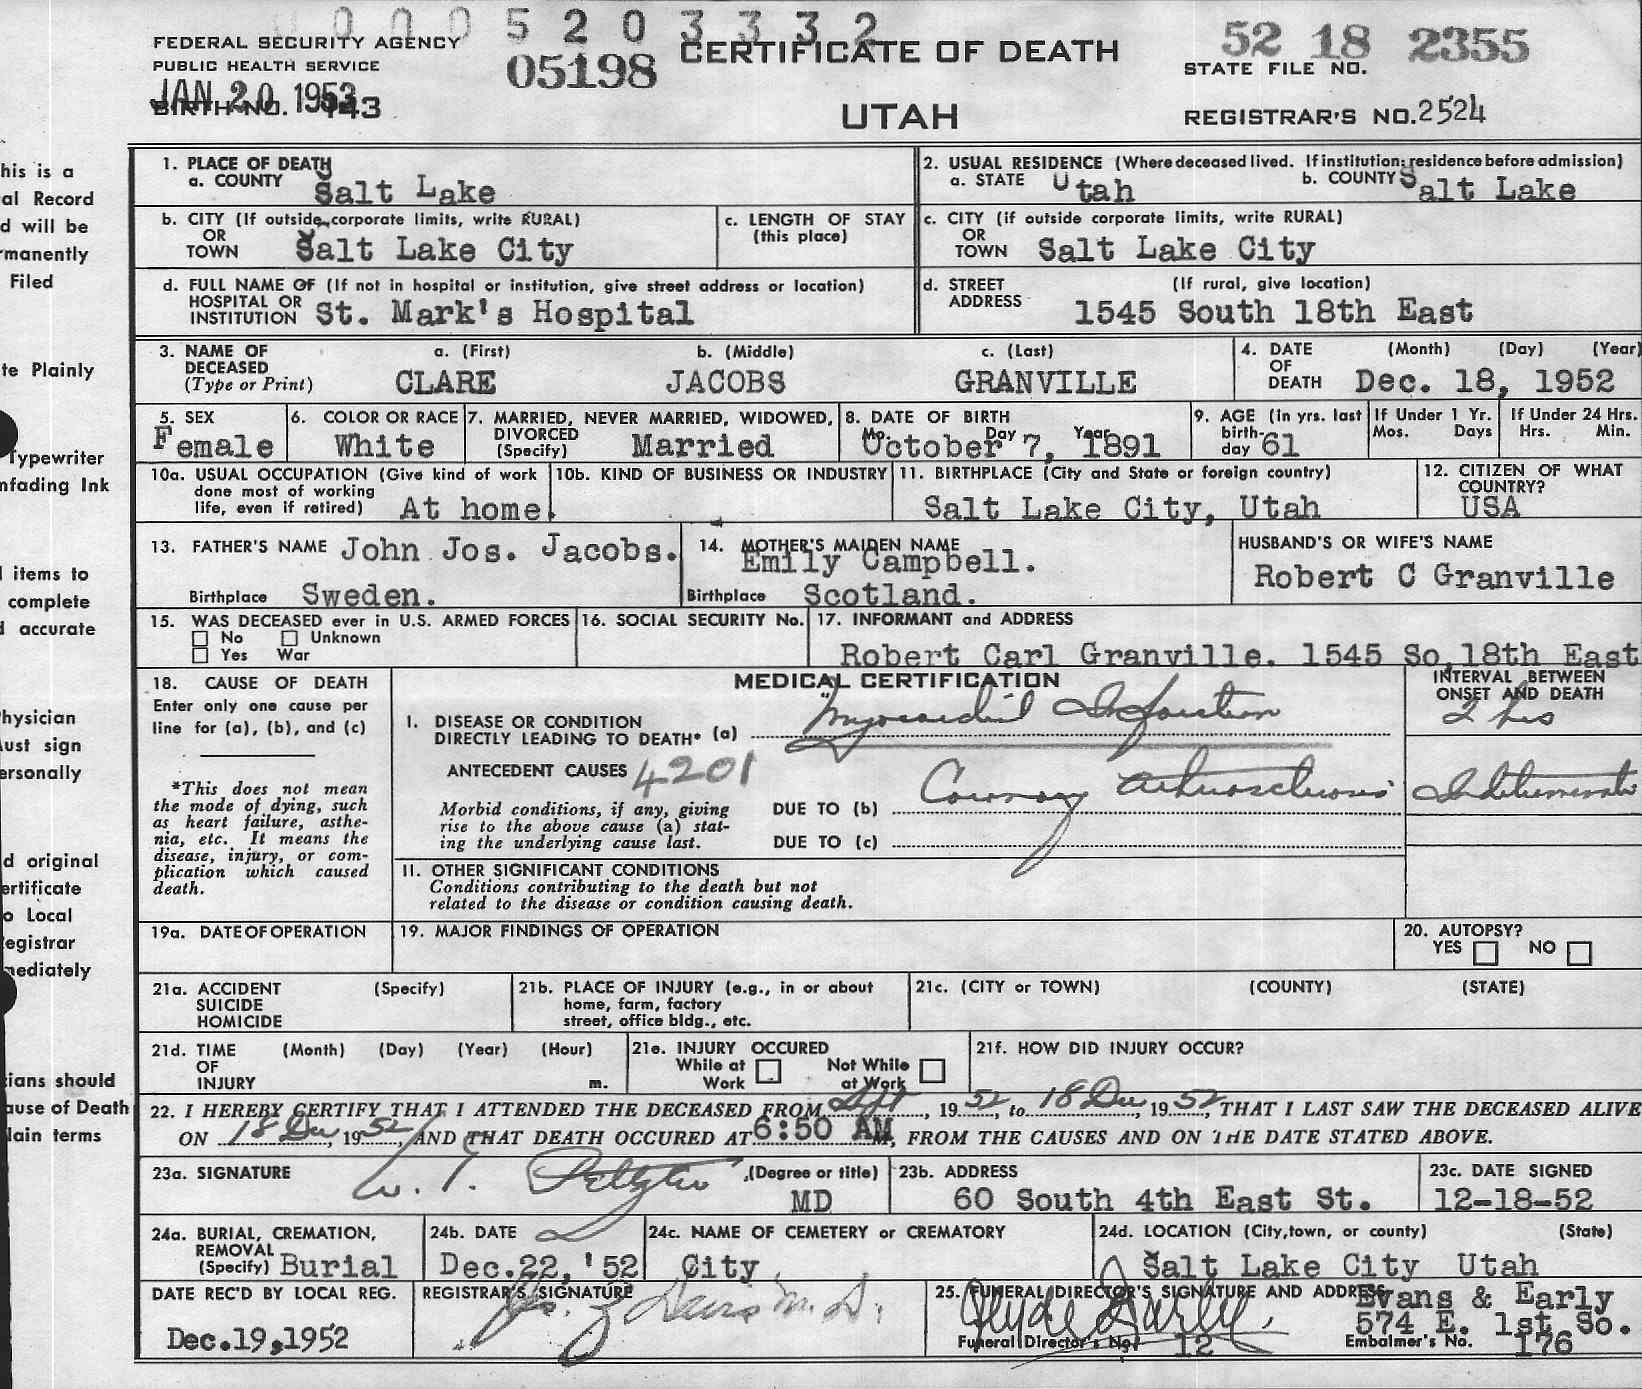 0005203332
FEDERAL SECURITY AGENCY
PUBLIC HEALTH SERVICE
05198
CERTIFICATE OF DEATH
52 18 2355
STATE FILE NO.
JAN 20 1953
BIRTH NO. 143
UTAH
REGISTRAR'S NO. 2524
1. PLACE OF DEATH
a. COUNTY Salt Lake
2. USUAL RESIDENCE (Where deceased lived. If institution: residence before admission)
a. STATE Utah b. COUNTY Salt Lake
b. CITY (If outside corporate limits, write RURAL)
OR
TOWN Salt Lake City
c. LENGTH OF STAY
(this place)
c. CITY (if outside corporate limits, write RURAL)
OR
TOWN Salt Lake City
d. FULL NAME OF (If not in hospital or institution, give street address or location)
HOSPITAL OR
INSTITUTION St. Mark's Hospital
d. STREET (If rural, give location)
ADDRESS 1545 South 18th East
3. NAME OF DECEASED (Type or Print)
a. (First) b. (Middle) c. (Last)
CLARE JACOBS GRANVILLE
4. DATE OF DEATH (Month) (Day) (Year)
Dec. 18, 1952
5. SEX
Female
6. COLOR OR RACE
White
7. MARRIED, NEVER MARRIED, WIDOWED,
DIVORCED
(Specify) Married
8. DATE OF BIRTH
Mo. Day Year
October 7, 1891
9. AGE (In yrs. last
birth-
day 61
If Under 1 Yr.
Mos. Days
If Under 24 Hrs.
Hrs. Min.
10a. USUAL OCCUPATION (Give kind of work
done most of working
life, even if retired) At home.
10b. KIND OF BUSINESS OR INDUSTRY
11. BIRTHPLACE (City and State or foreign country)
Salt Lake City, Utah
12. CITIZEN OF WHAT
COUNTRY?
USA
13. FATHER'S NAME John Jos. Jacobs.
Birthplace Sweden.
14. MOTHER'S MAIDEN NAME
Emily Campbell.
Birthplace Scotland.
HUSBAND'S OR WIFE'S NAME
Robert C Granville
15. WAS DECEASED ever in U.S. ARMED FORCES
No Unknown
Yes War
16. SOCIAL SECURITY No.
17. INFORMANT and ADDRESS
Robert Carl Granville. 1545 So. 18th East
18. CAUSE OF DEATH
Enter only one cause per
line for (a), (b), and (c)
*This does not mean
the mode of dying, such
as heart failure, asthe-
nia, etc. It means the
disease, injury, or com-
plication which caused
death.
MEDICAL CERTIFICATION
INTERVAL BETWEEN
ONSET AND DEATH
I. DISEASE OR CONDITION
DIRECTLY LEADING TO DEATH* (a) Myocardial Infarction
2 hrs
ANTECEDENT CAUSES 4201
Morbid conditions, if any, giving
rise to the above cause (a) stat-
ing the underlying cause last.
DUE TO (b) Coronary Arteriosclerosis
Indeterminate
DUE TO (c)
II. OTHER SIGNIFICANT CONDITIONS
Conditions contributing to the death but not
related to the disease or condition causing death.
19a. DATE OF OPERATION
19. MAJOR FINDINGS OF OPERATION
20. AUTOPSY?
YES NO
21a. ACCIDENT (Specify)
SUICIDE
HOMICIDE
21b. PLACE OF INJURY (e.g., in or about
home, farm, factory
street, office bldg., etc.
21c. (CITY or TOWN) (COUNTY) (STATE)
21d. TIME (Month) (Day) (Year) (Hour)
OF
INJURY m.
21e. INJURY OCCURED
While at Work Not While at Work
21f. HOW DID INJURY OCCUR?
22. I HEREBY CERTIFY THAT I ATTENDED THE DECEASED FROM Sept, 19 52, to 18 Dec, 19 52, THAT I LAST SAW THE DECEASED ALIVE
ON 18 Dec, 19 52, AND THAT DEATH OCCURED AT 6:50 AM, FROM THE CAUSES AND ON THE DATE STATED ABOVE.
23a. SIGNATURE (Degree or title)
MD
23b. ADDRESS
60 South 4th East St.
23c. DATE SIGNED
12-18-52
24a. BURIAL, CREMATION,
REMOVAL
(Specify) Burial
24b. DATE
Dec.22,'52
24c. NAME OF CEMETERY or CREMATORY
City
24d. LOCATION (City, town, or county) (State)
Salt Lake City Utah
DATE REC'D BY LOCAL REG.
Dec.19,1952
REGISTRAR'S SIGNATURE
25. FUNERAL DIRECTOR'S SIGNATURE AND ADDRESS
Clyde Early
Evans & Early
574 E. 1st So.
Funeral Director's No. 12
Embalmer's No. 176
his is a
al Record
d will be
rmanently
Filed
te Plainly
Typewriter
nfading Ink
l items to
complete
d accurate
hysician
ust sign
ersonally
d original
ertificate
o Local
egistrar
mediately
cians should
ause of Death
lain terms